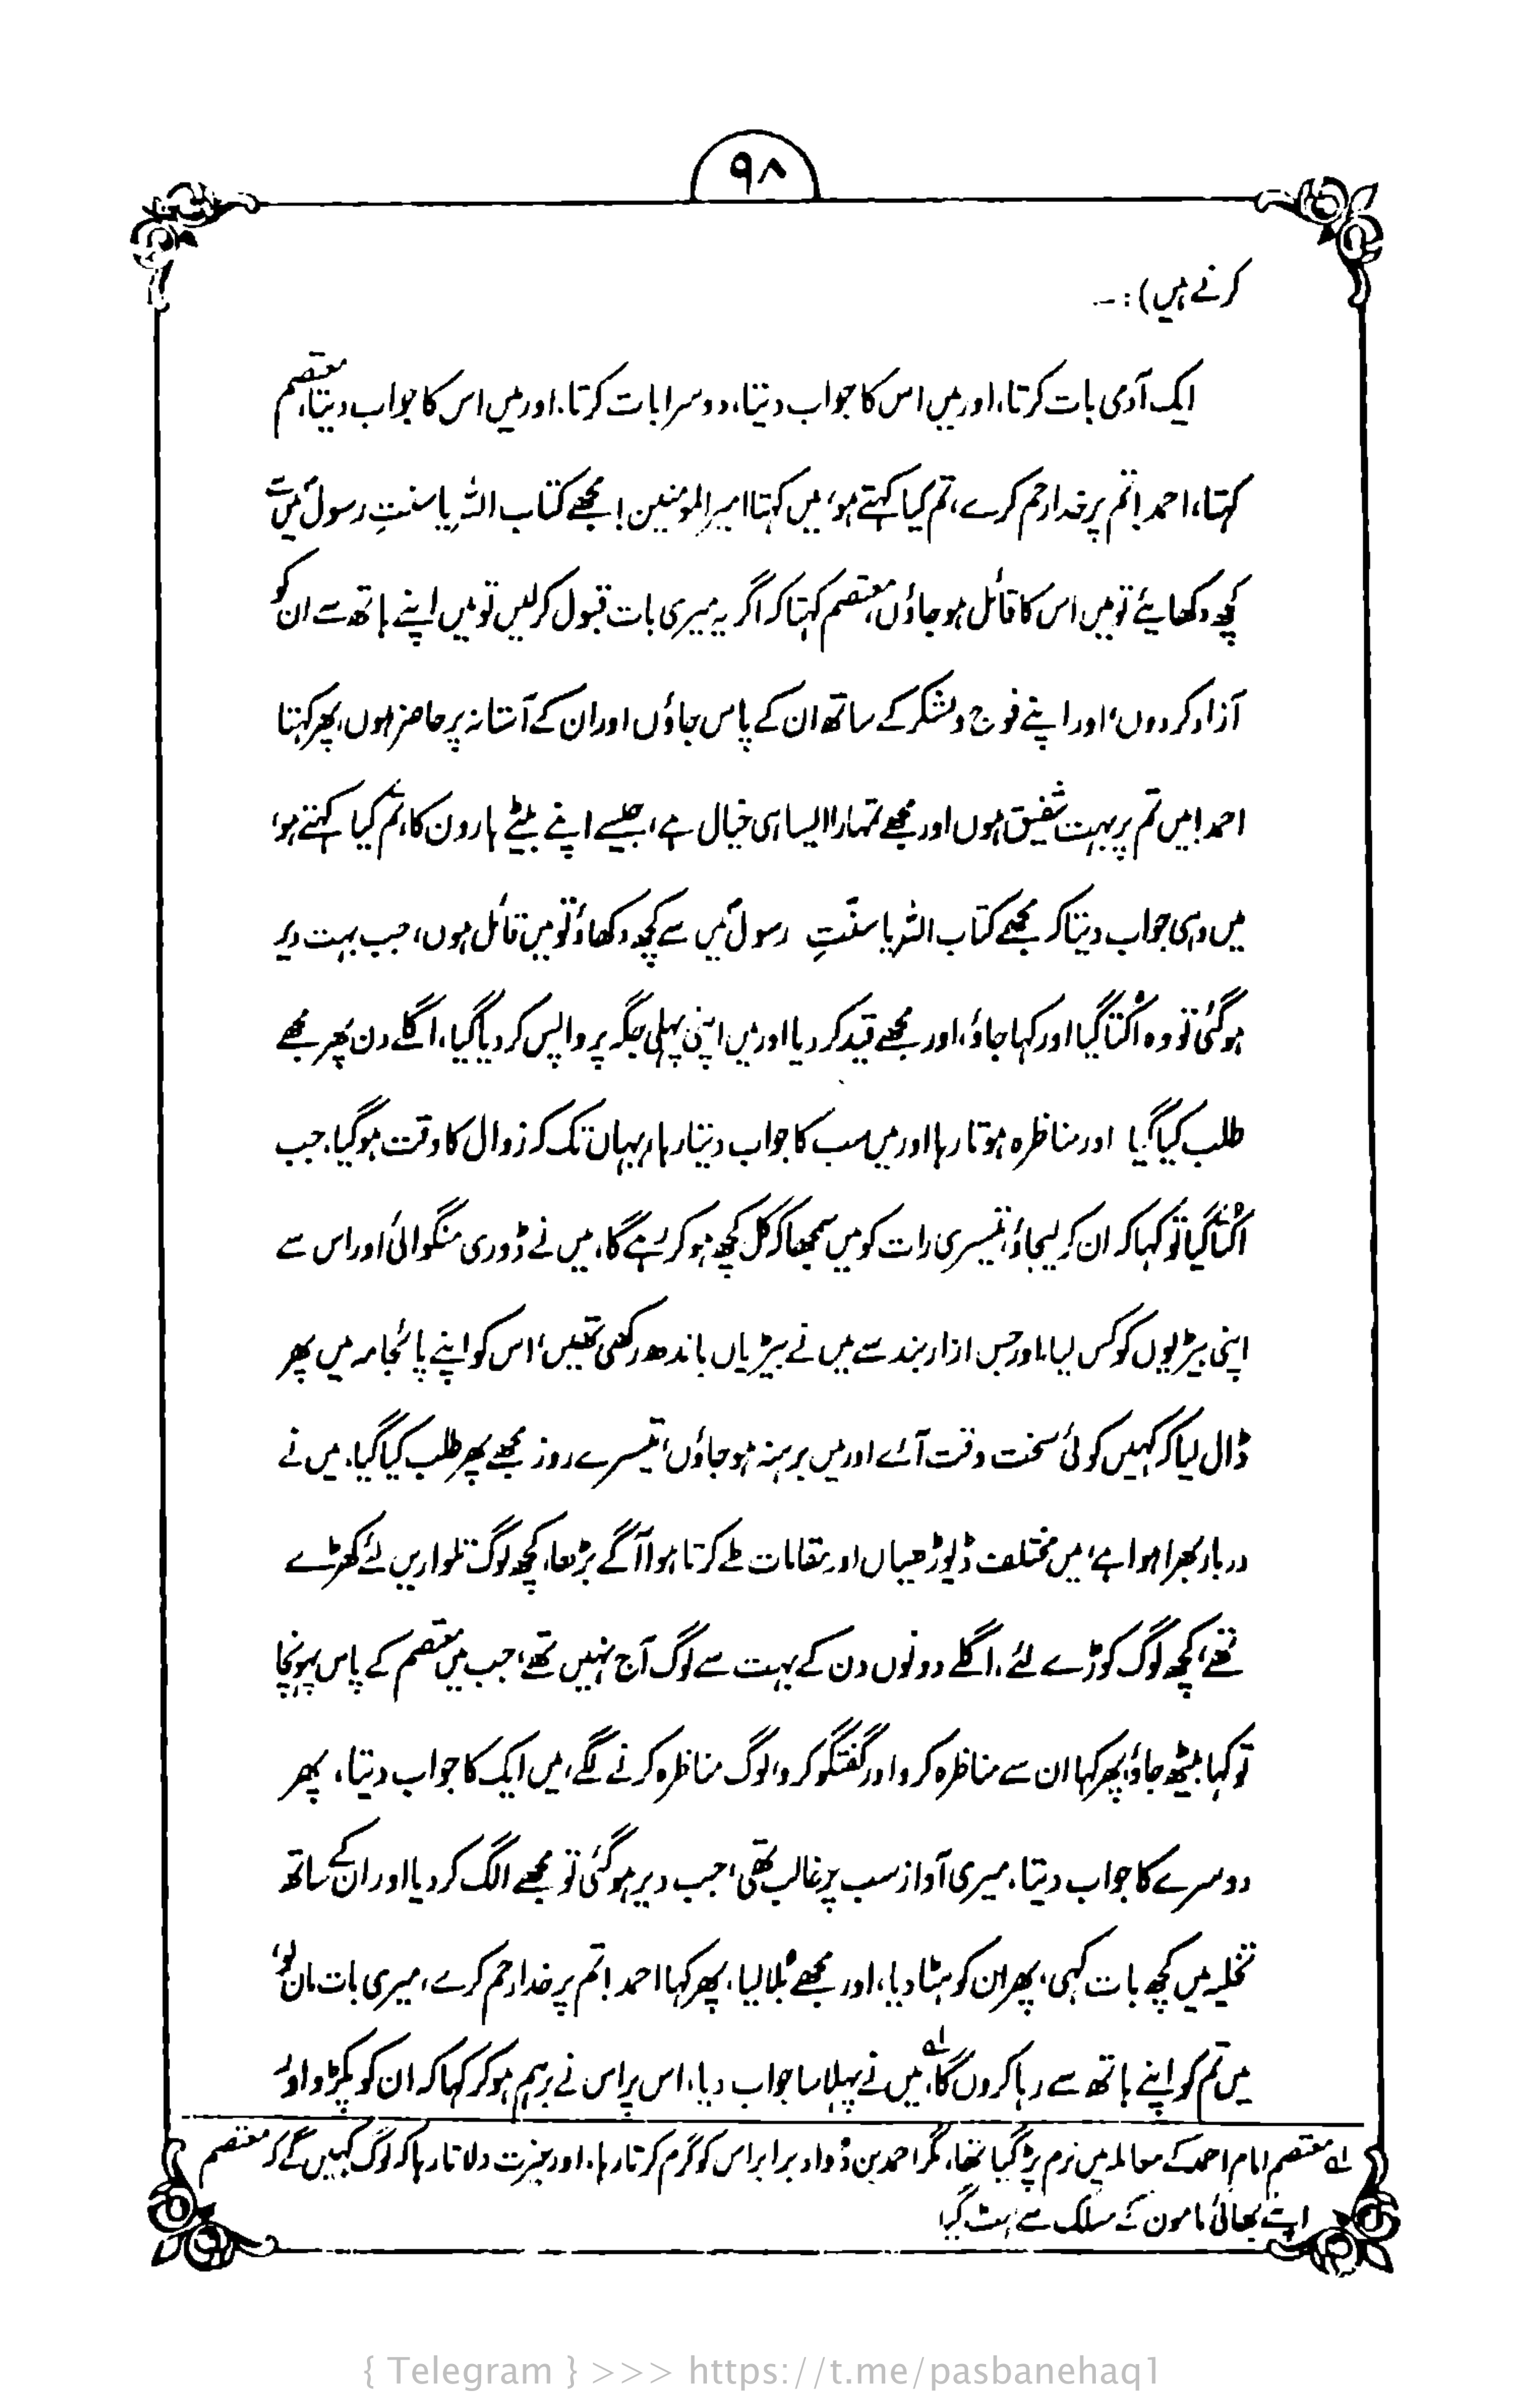 ۹۸
کرتے ہیں) :-
ایک آدمی بات کرتا، اور میں اس کا جواب دیتا، دوسرا بات کرتا، اور میں اس کا جواب دیتا، معتصم
کہتا، احمد! تم پر خدا رحم کرے، تم کیا کہتے ہو، میں کہتا امیر المومنین! مجھے کتاب اللہ یا سنتِ رسولؐ میں سے
کچھ دکھایئے تو میں اس کا قائل ہو جاؤں، معتصم کہتا کہ اگر یہ میری بات قبول کر لیں تو میں اپنے ہاتھ سے ان کو
آزاد کر دوں، اور اپنے فوج و لشکر کے ساتھ ان کے پاس جاؤں اور ان کے آستانہ پر حاضر ہوں، پھر کہتا
احمد! میں تم پر بہت شفیق ہوں اور مجھے تمہارا ایسا ہی خیال ہے، جیسے اپنے بیٹے ہارون کا، تم کیا کہتے ہو،
میں وہی جواب دیتا کہ مجھے کتاب اللہ یا سنّتِ رسولؐ میں سے کچھ دکھاؤ تو میں قائل ہوں، جب بہت دیر
ہو گئی تو وہ اُکتا گیا اور کہا جاؤ، اور مجھے قید کر دیا اور میں اپنی پہلی جگہ پر واپس کر دیا گیا، اگلے دن پھر مجھے
طلب کیا گیا اور مناظرہ ہوتا رہا اور میں سب کا جواب دیتا رہا، یہاں تک کہ زوال کا وقت ہو گیا، جب
اُکتا گیا تو کہا کہ ان کو لیجاؤ، تیسری رات کو میں سمجھا کہ کل کچھ ہو کر رہے گا، میں نے ڈوری منگوائی اور اس سے
اپنی بیڑیوں کو کس لیا، اور جس ازار بند سے میں نے بیڑیاں باندھ رکھی تھیں، اس کو اپنے پائجامہ میں پھر
ڈال لیا کہ کہیں کوئی سخت وقت آئے اور میں برہنہ ہو جاؤں، تیسرے روز مجھے پھر طلب کیا گیا، میں نے
دربار بھرا ہوا ہے، میں مختلف ڈیوڑھیاں اور مقامات طے کرتا ہوا آگے بڑھا، کچھ لوگ تلواریں لئے کھڑے
تھے، کچھ لوگ کوڑے لئے، اگلے دونوں دن کے بہت سے لوگ آج نہیں تھے، جب میں معتصم کے پاس پہونچا
تو کہا بیٹھ جاؤ، پھر کہا ان سے مناظرہ کرو اور گفتگو کرو، لوگ مناظرہ کرنے لگے، میں ایک کا جواب دیتا، پھر
دوسرے کا جواب دیتا، میری آواز سب پر غالب تھی، جب دیر ہو گئی تو مجھے الگ کر دیا اور ان کے ساتھ
تخلیہ میں کچھ بات کہی، پھر ان کو ہٹا دیا، اور مجھے بُلا لیا، پھر کہا احمد! تم پر خدا رحم کرے، میری بات مان لو،
میں تم کو اپنے ہاتھ سے رہا کروں گا،لہ میں نے پہلا سا جواب دیا، اس پر اس نے برہم ہو کر کہا کہ ان کو پکڑو اور
لہ معتصم امام احمد کے معاملہ میں نرم پڑ گیا تھا، مگر احمد بن دُواد برابر اس کو گرم کرتا رہا، اور غیرت دلاتا رہا کہ لوگ کہیں گے کہ معتصم
اپنے بھائی مامون کے مسلک سے ہٹ گیا
{ Telegram } >>> https://t.me/pasbanehaq1